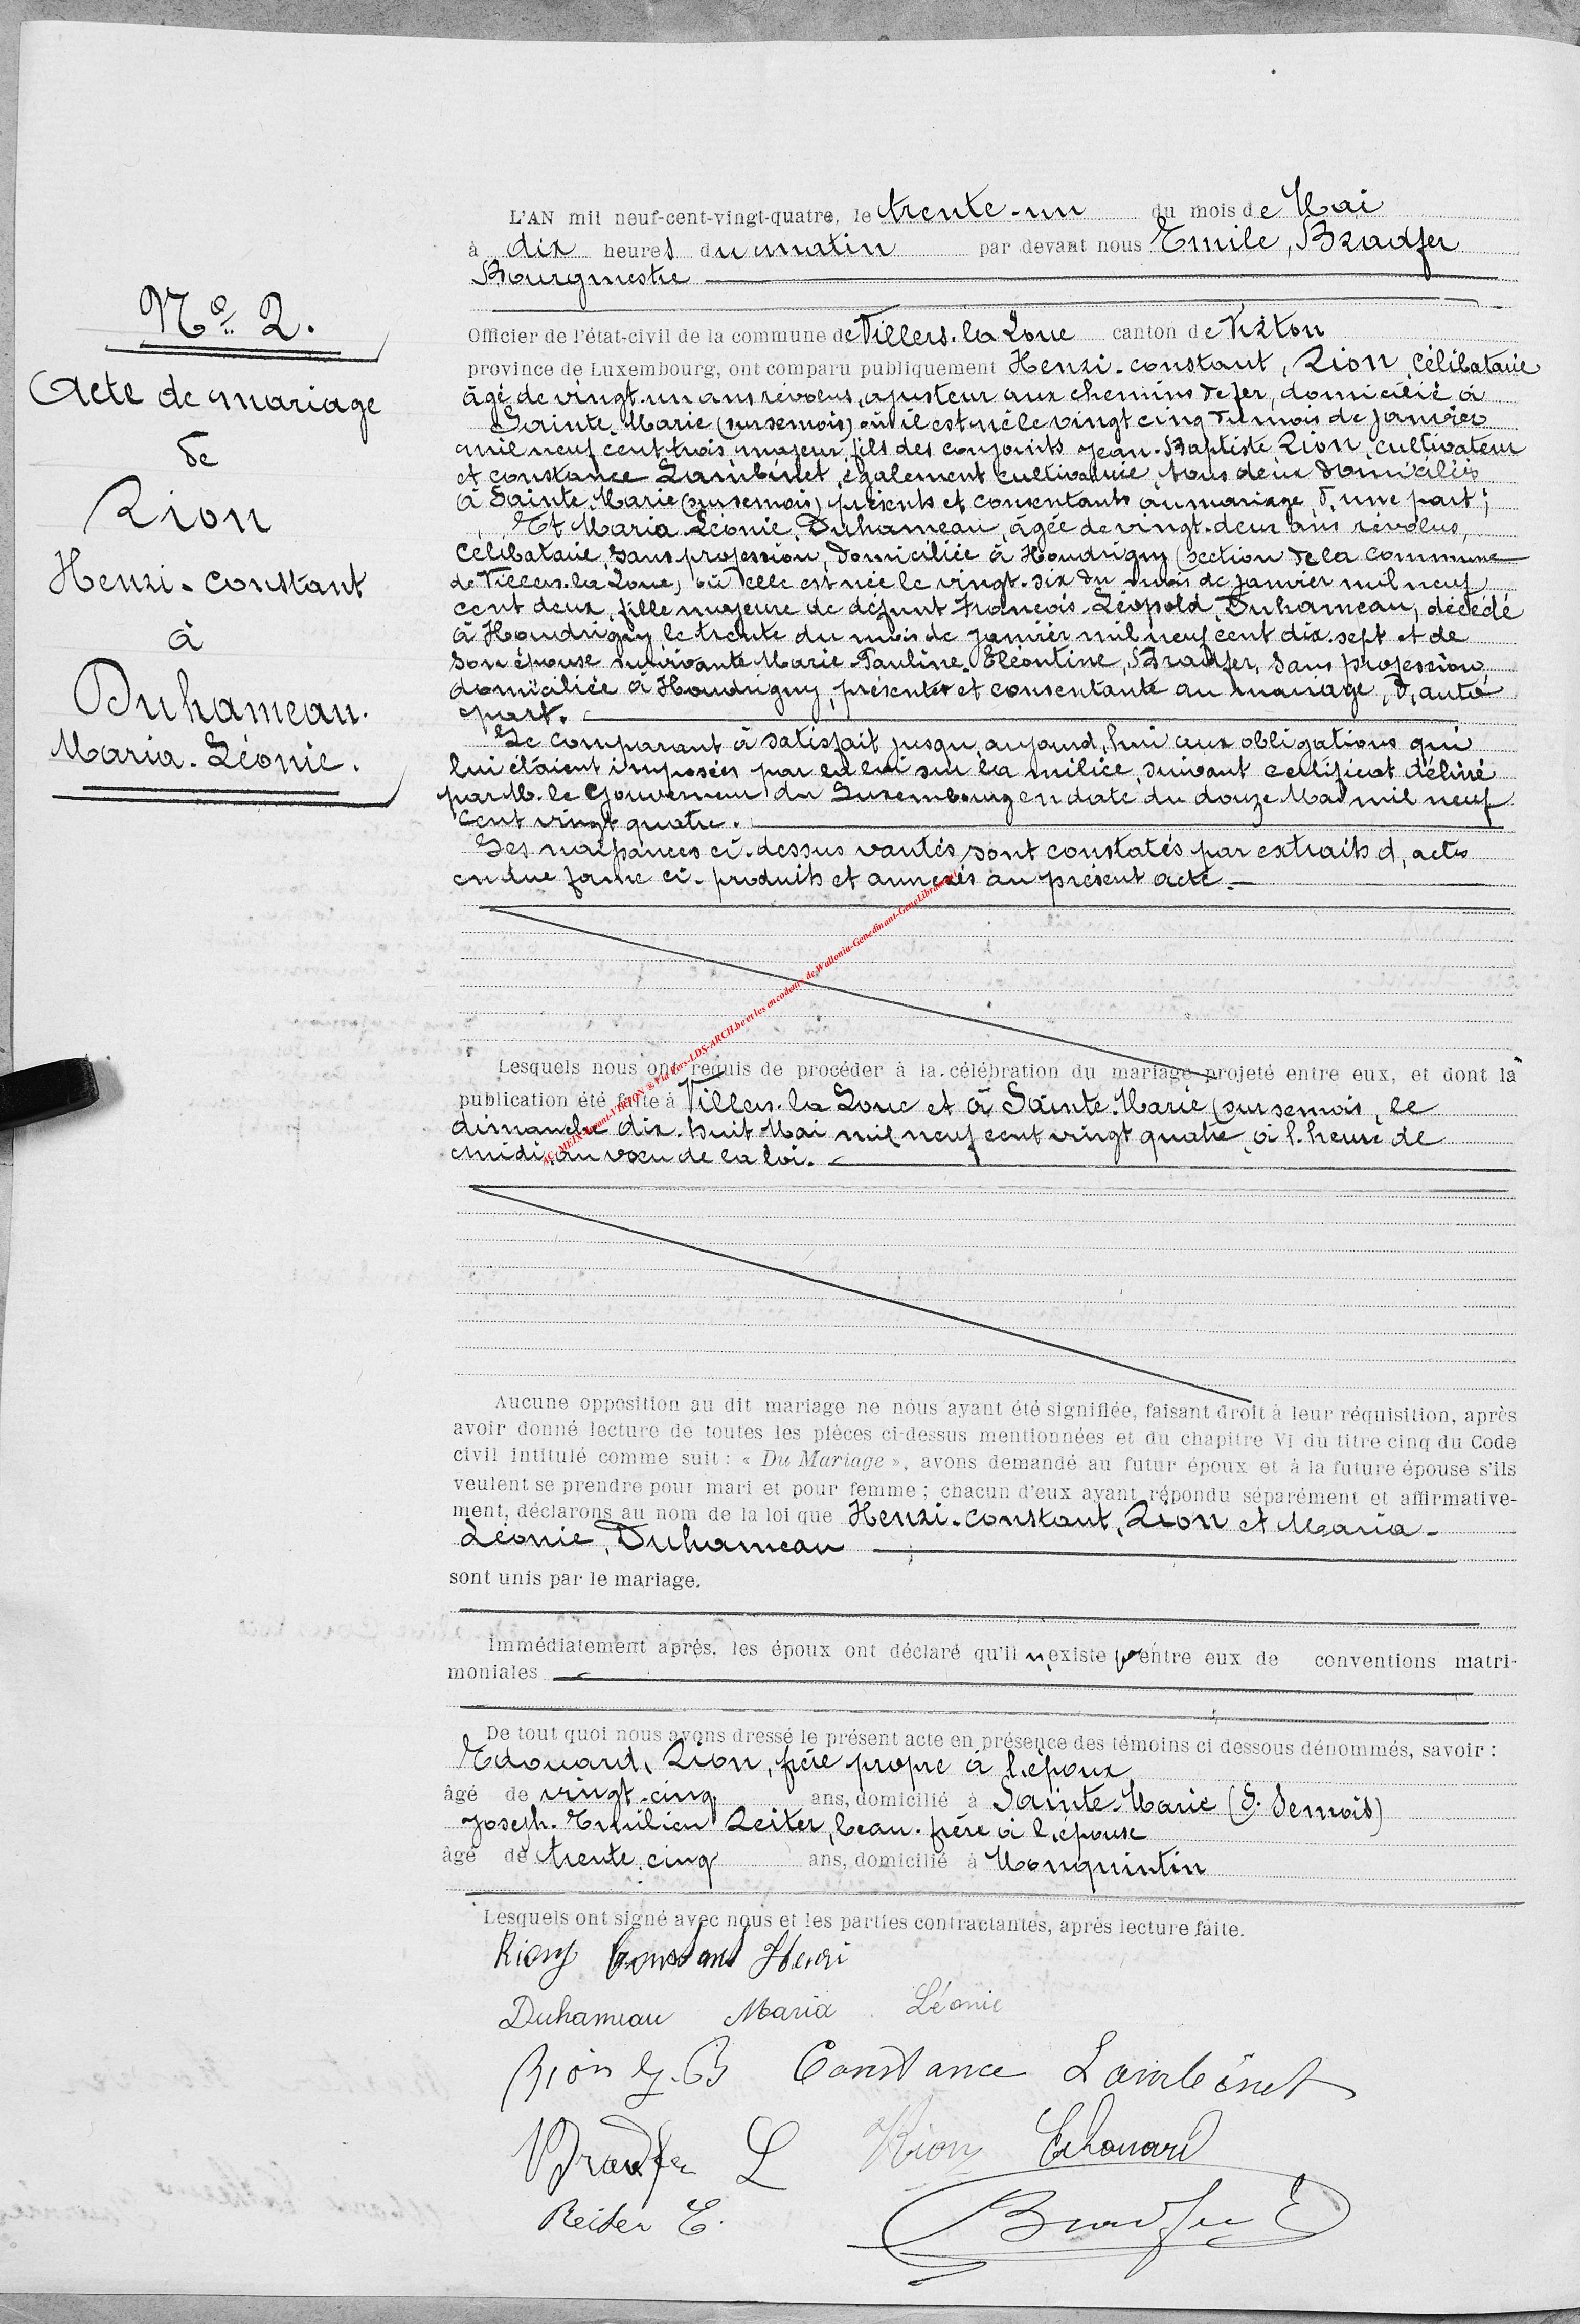 L'AN mil neuf-cent-vingt-quatre, le trente-un du mois de Mai
à dix heures du matin par devant nous Emile, Bradfer
Bourgmestre
Officier de l'état-civil de la commune de Villers-la-Loue canton de Virton
province de Luxembourg, ont comparu publiquement Henri-constant, Rion, célibataire
âgé de vingt-un ans révolus, ajusteur aux chemins de fer, domicilié à
Sainte-Marie (sur semois) où il est né le vingt cinq du mois de janvier
mil neuf cent trois majeur, fils des conjoints Jean-Baptiste Rion, cultivateur
et constance Lambinet, également cultivatrice, tous deux domiciliés
à Sainte-Marie (sur semois) présents et consentants au mariage, d'une part;
Et Maria-Léonie, Duhameau, âgée de vingt-deux ans révolus,
célibataire, sans profession, domiciliée à Houdrigny (section de la commune
de Villers-la-Loue, où elle est née le vingt-six du mois de janvier mil neuf
cent deux, fille majeure de défunt François-Léopold, Duhameau, décédé
à Houdrigny le trente du mois de janvier mil neuf cent dix-sept et de
son épouse survivante Marie-Pauline-Eléontine, Bradfer, sans profession,
domiciliée à Houdrigny, présente et consentante au mariage, d, autre
part.
Le comparant à satisfait jusqu, aujourd, hui aux obligations qui
lui étaient imposées par la loi sur la milice, suivant certificat délivré
par M. le Gouverneur du Luxembourg en date du douze Mai mil neuf
cent vingt quatre.
Les naissances ci-dessus vantés, sont constatés par extraits d, actes
en due forme ci-produits et annexés au présent acte.
Lesquels nous ont requis de procéder à la célébration du mariage projeté entre eux, et dont la
publication été faite à Villers-la-Loue et à Sainte-Marie (sur semois, le
dimanche dix-huit Mai mil neuf cent vingt quatre, à l'heure de
midi, au vœu de la loi.
Aucune opposition au dit mariage ne nous ayant été signifiée, faisant droit à leur réquisition, après
avoir donné lecture de toutes les pièces ci-dessus mentionnées et du chapitre VI du titre cinq du Code
civil intitulé comme suit : « Du Mariage », avons demandé au futur époux et à la future épouse s'ils
veulent se prendre pour mari et pour femme ; chacun d'eux ayant répondu séparément et affirmative-
ment, déclarons au nom de la loi que Henri-constant, Rion et Maria-
Léonie, Duhameau
sont unis par le mariage.
Immédiatement après, les époux ont déclaré qu'il n'existe pas entre eux de conventions matri-
moniales
De tout quoi nous avons dressé le présent acte en présence des témoins ci dessous dénommés, savoir :
Edouard, Rion, frère propre à l'époux
âgé de vingt-cinq ans, domicilié à Sainte-Marie (S. Semois)
Joseph-Emilien Reiter, beau-frère à l'épouse
âgé de trente cinq ans, domicilié à Monquintin
Lesquels ont signé avec nous et les parties contractantes, après lecture faite.
Rion Constant Henri
Duhameau Maria Léonie
Rion J.B Constance Lambinet
Bradfer L Rion Edouard
Reiter E. Bradfer E
No 2.
Acte de mariage
de
Rion
Henri-constant
à
Duhameau.
Maria-Léonie.